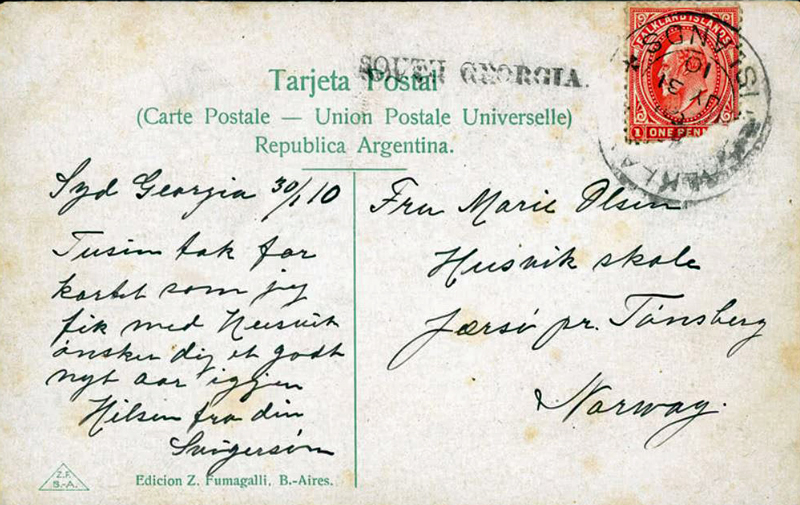 SOUTH GEORGIA.
Tarjeta Postal
(Carte Postale — Union Postale Universelle)
Republica Argentina.
FALKLAND ISLANDS
1 ONE PENNY
ISLANDS
JY 31
10
Syd Georgia 30/1 10
Tusin tak for
kortet som jeg
fik med Husvik
ønsker dig et godt
nyt aar iggjen
Hilsen fra din
Svigersøn
Fru Marie Olsen
Husvik skole
Jærsø pr. Tønsberg
Norway.
Z.F.
B.-A.
Edicion Z. Fumagalli, B.-Aires.